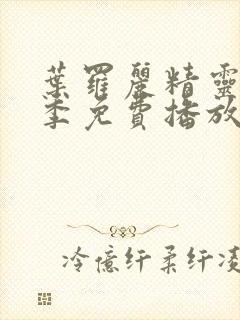 葉羅麗精靈
季免費播放
冷億纤柔纤凌